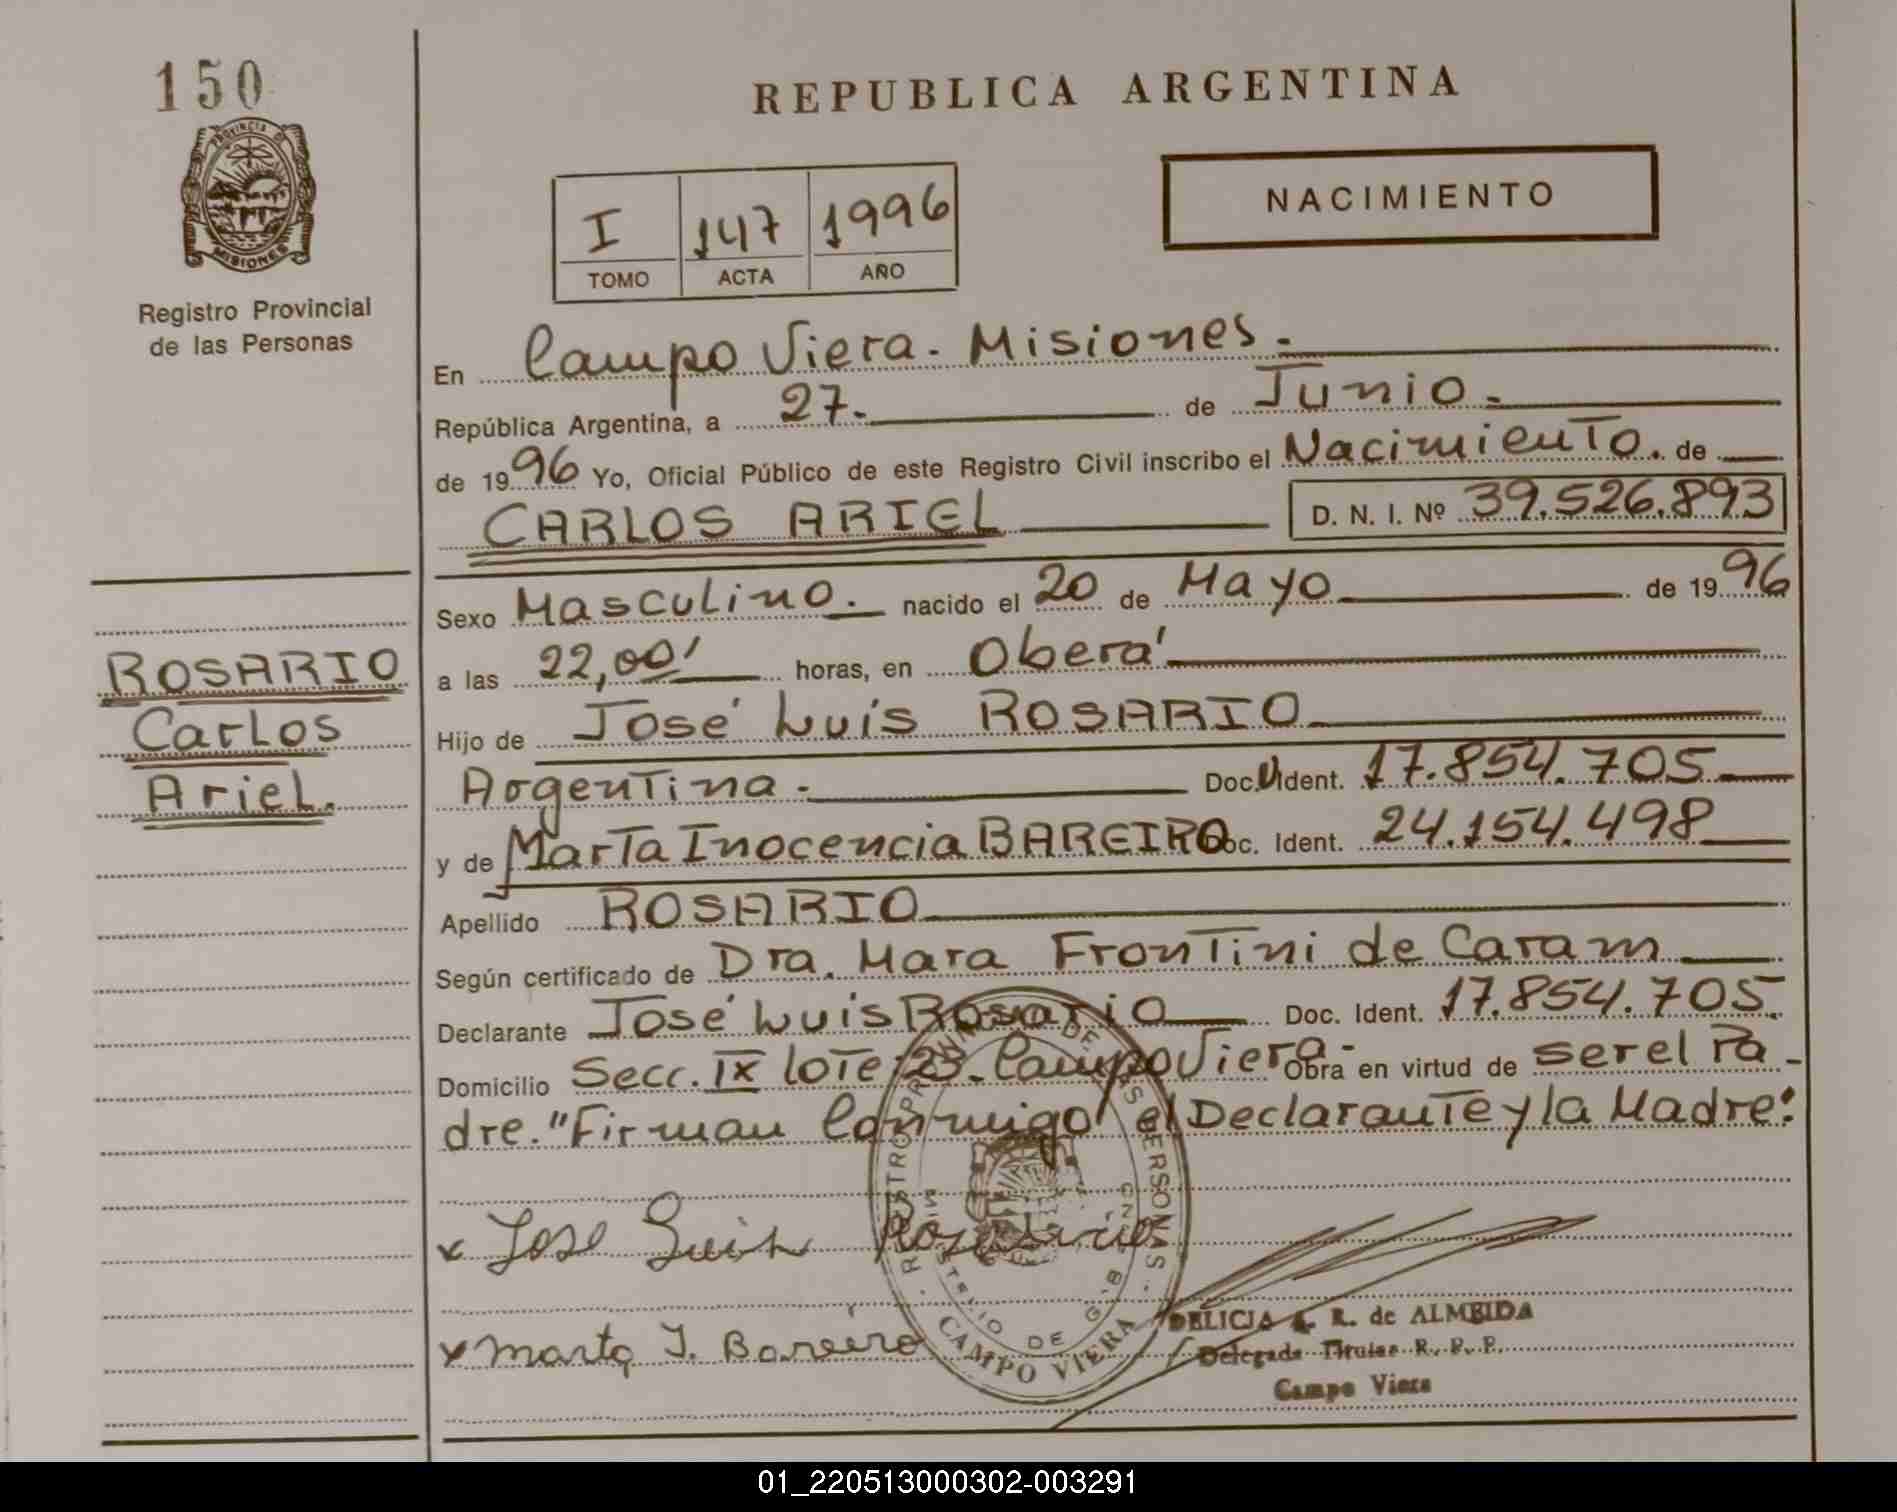 150
PROVINCIA DE
MISIONES
Registro Provincial
de las Personas
ROSARIO
Carlos
Ariel.
REPUBLICA ARGENTINA
I 147 1996
TOMO ACTA AÑO
NACIMIENTO
En Campo Viera. Misiones.
República Argentina, a 27. de Junio.
de 1996 Yo, Oficial Público de este Registro Civil inscribo el Nacimiento. de
CARLOS ARIEL D. N. I. Nº 39.526.893
Sexo Masculino. nacido el 20 de Mayo de 1996
a las 22,00' horas, en Oberá
Hijo de José Luis ROSARIO
Argentina. Doc. Ident. 17.854.705
y de Marta Inocencia BAREIRO Doc. Ident. 24.154.498
Apellido ROSARIO
Según certificado de Dra. Mara Frontini de Caram
Declarante José Luis Rosario Doc. Ident. 17.854.705.
Domicilio Secc. IX lote 23. Campo Viera- Obra en virtud de ser el Pa-
dre. "Firman Conmigo el Declarante y la Madre.
x Jose Luis Rosario
x Marta I. Bareiro
REGISTRO PROVINCIAL DE LAS PERSONAS
MINISTERIO DE GOB.
CAMPO VIERA
DELICIA R. de ALMEIDA
Delegada Titular R. P. P.
Campo Viera
01_220513000302-003291